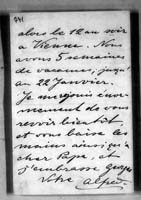 241
alors le 12 au soir
à Vienne. Nous
avons 5 semaines
de vacances, jusqu'
au 22 Janvier.
Je me réjouis énor-
mement de vous
revoir bientôt
et vous baise les
mains ainsi, qu'à
cher Papa, et
j'embrasse Georges
Votre Alfred.